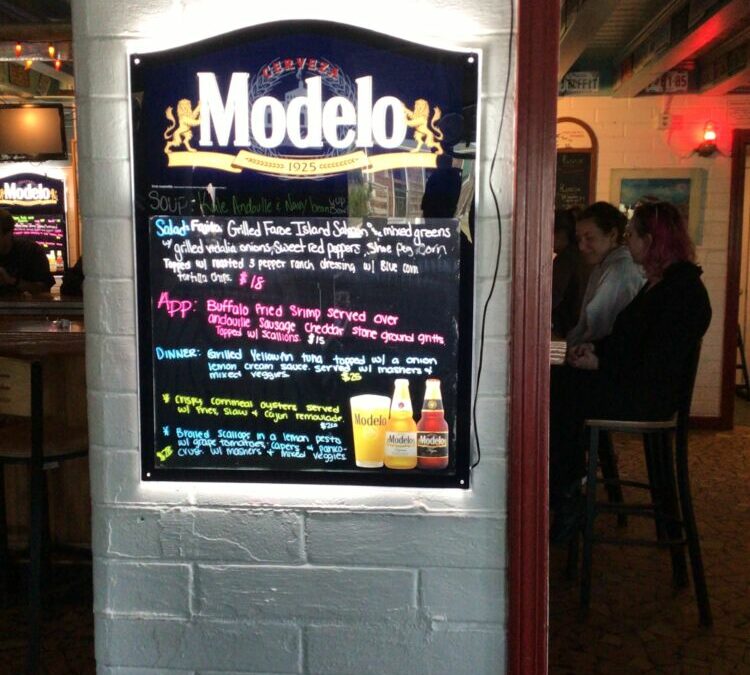 CERVEZA
Modelo
1925
Soup: Kale, Andouille & Navy bean
Salad: Fajita Grilled Faroe Island Salmon mixed greens
w/ grilled vidalia onions, sweet red peppers, Shoe Peg Corn
Topped w/ roasted 3 pepper ranch dressing w/ Blue corn
tortilla chips. $18
APP: Buffalo fried Srimp served over
andouille Sausage cheddar stone ground grits
Topped w/ scallions. $15
DINNER: Grilled Yellowfin tuna topped w/ a onion
lemon cream sauce. served w/ mashers &
mixed veggies. $25
* Crispy cornmeal oysters served
w/ fries, slaw & cajun remoulade.
* Broiled scallops in a lemon pesto
w/ grape tomatoes, capers & panko
crust w/ mashers & mixed veggies.
Modelo
Modelo
Modelo
Modelo